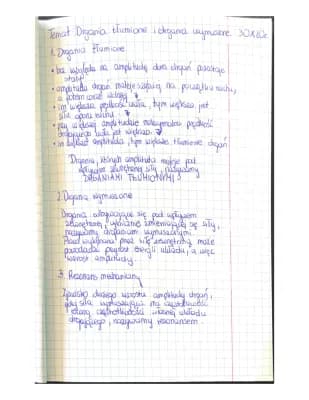 Temat: Drgania tłumione i drgania wymuszone. 30.X.20r.
1. Drgania tłumione
• bez względu na amplitudę okres drgań pozostaje stały
• amplituda drgań maleje szybciej na początku ruchu,
a potem coraz wolniej
• im większa prędkość ciała, tym większa jest
siła oporu ruchu
• przy większej amplitudzie maksymalna prędkość
drgającego ciała jest większa
• im większa amplituda, tym większe tłumienie drgań
Drgania, których amplituda maleje pod
wpływem zewnętrznej siły, nazywamy
DRGANIAMI TŁUMIONYMI
2. Drgania wymuszone
Drgania, odbywające się pod wpływem
zewnętrznej, cyklicznie zmieniającej się siły,
nazywamy drganiami wymuszonymi.
Praca wykonana przez siłę zewnętrzną może
powodować przyrost energii układu, a więc
wzrost amplitudy.
3. Rezonans mechaniczny
Zjawisko dużego wzrostu amplitudy drgań,
gdy siła wymuszająca ma częstotliwość
równą częstotliwości własnej układu
drgającego, nazywamy rezonansem.